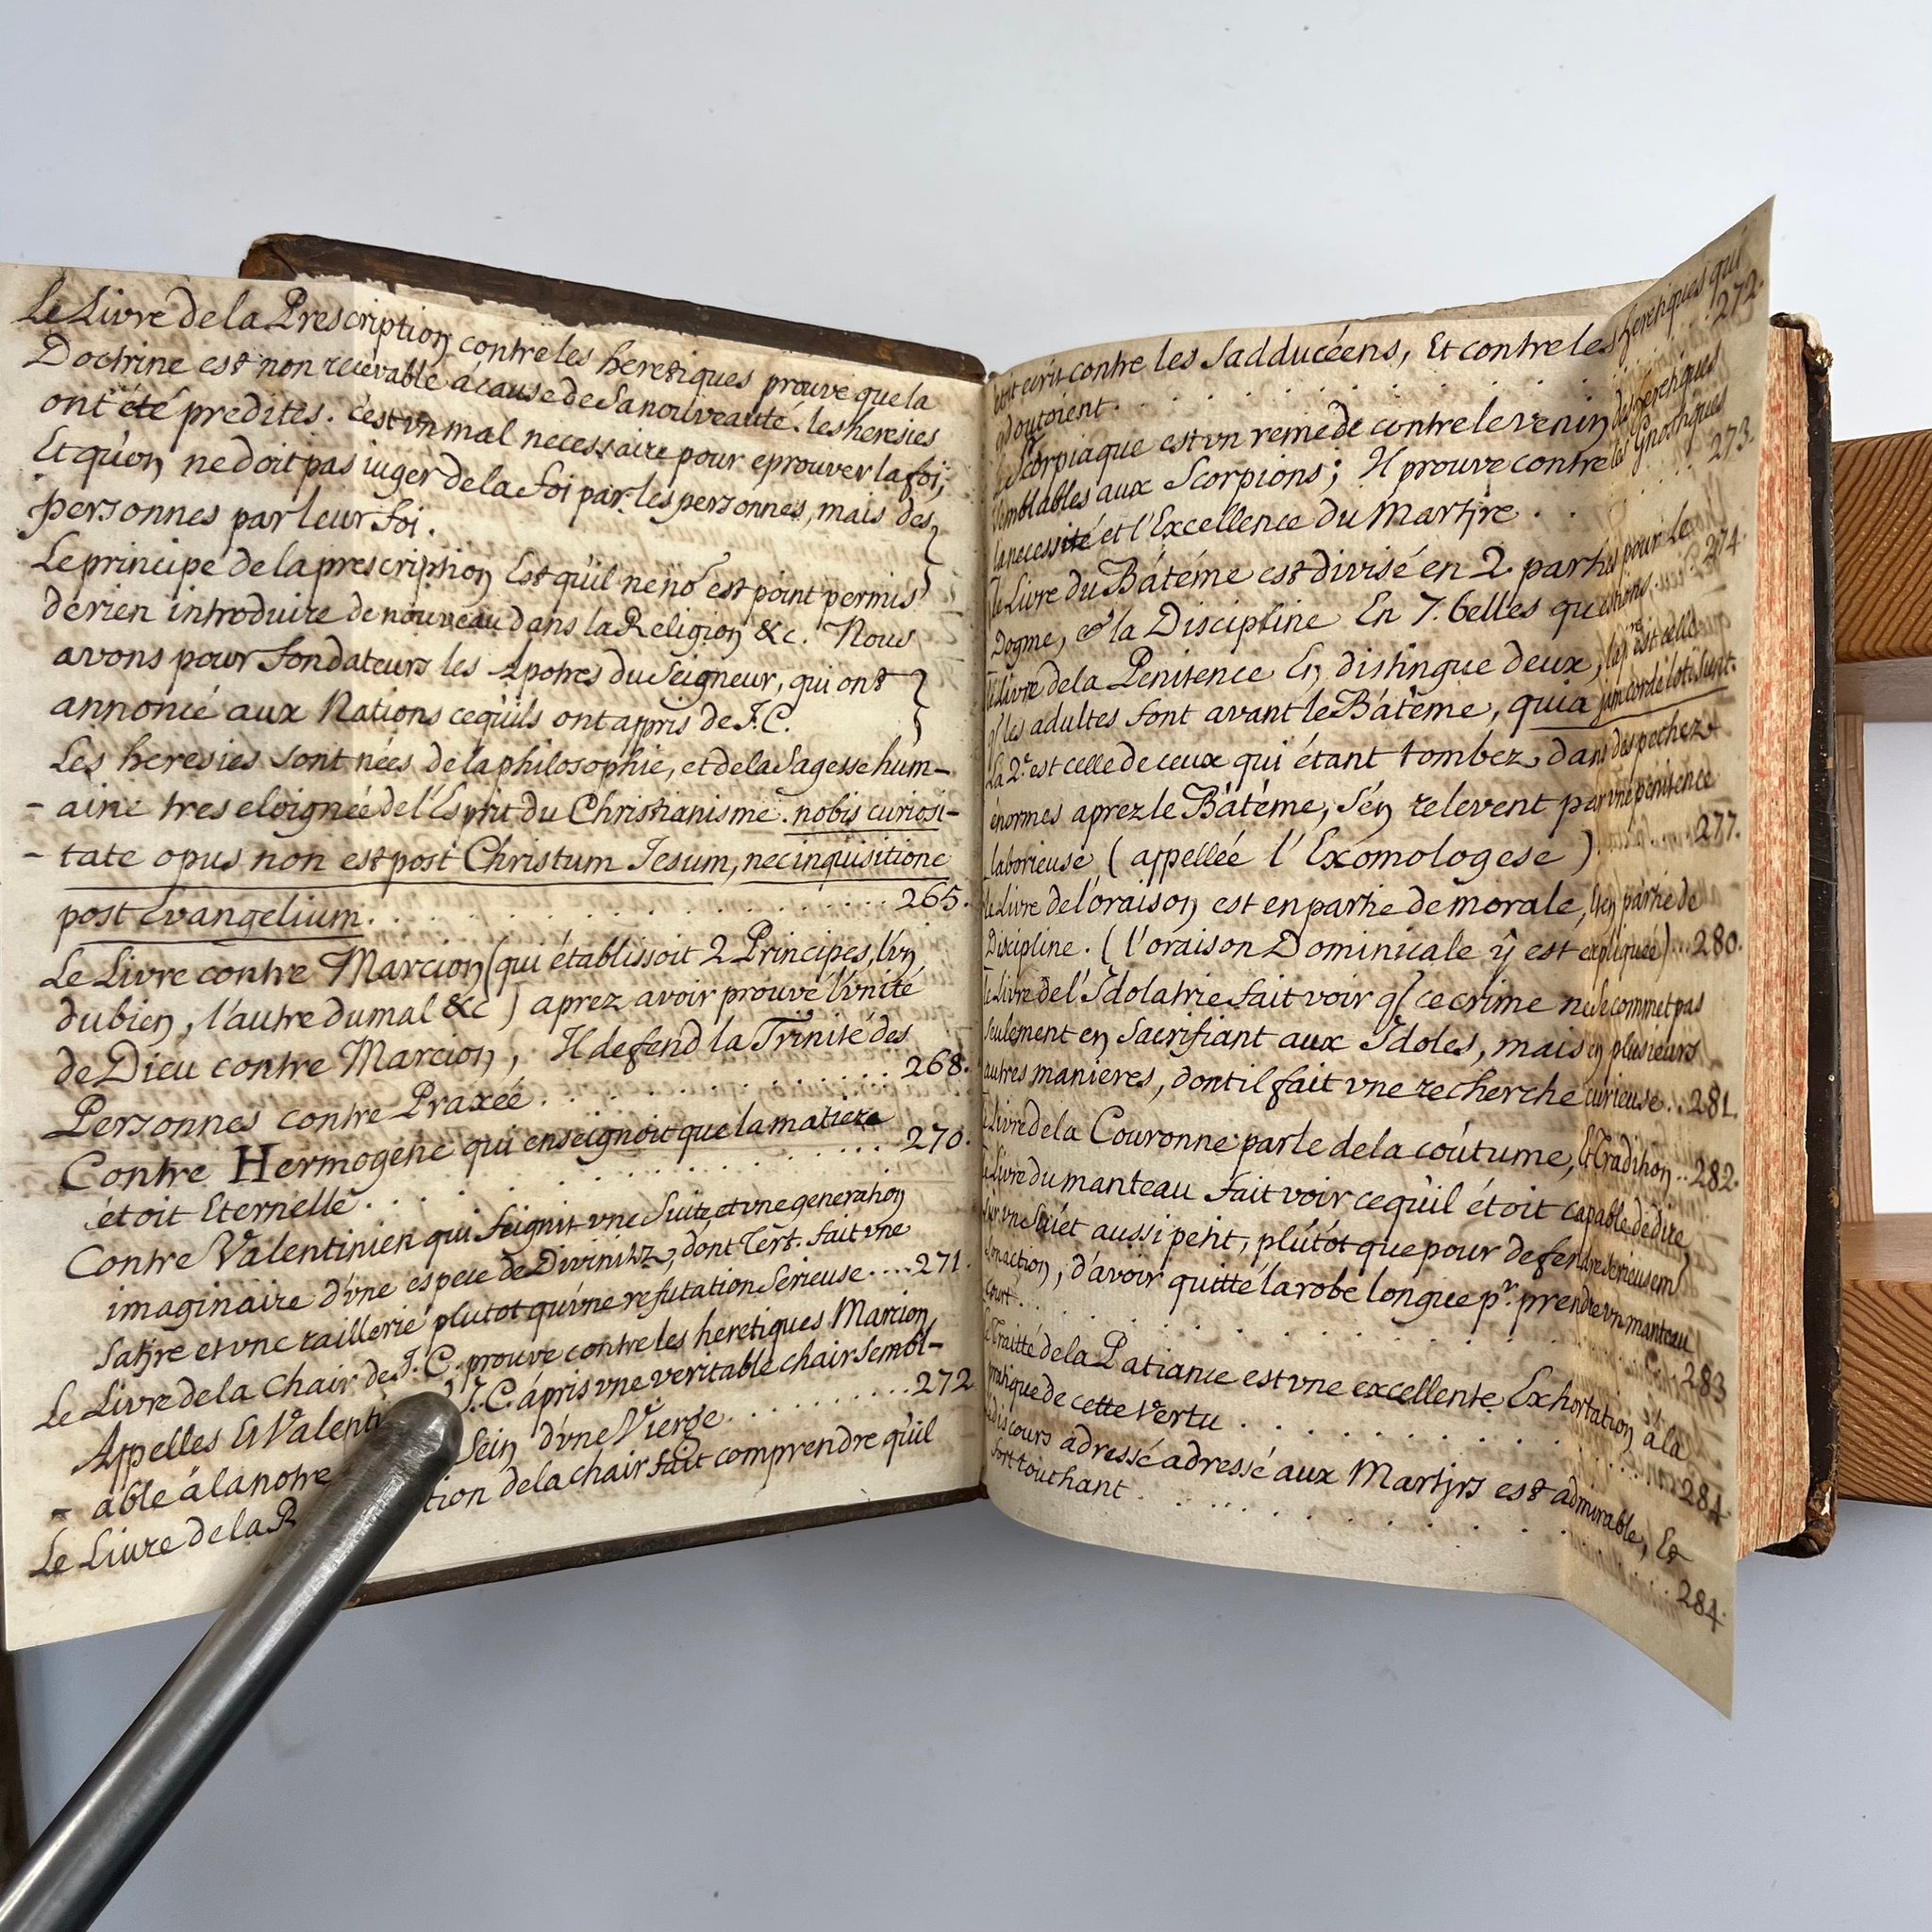 Le Livre de la Prescription contre les heretiques prouve que la
Doctrine est non recevable á cause de Sa nouveauté. les heresies
ont été predites. c'est un mal necessaire pour eprouver la foi;
Et qu'on ne doit pas iuger de la foi par les personnes, mais des
personnes par leur foi.
Le principe de la prescription Est qu'il ne est point permis
de rien introduire de nouveau dans la Religion &c. Nous
avons pour fondateurs les Apotres du Seigneur, qui ont
annoncé aux Nations cequ'ils ont appris de J.C.
Les heresies sont nées de la philosophie, et de la Sagesse hum-
- aine tres eloignée de l'Esprit du Christianisme. nobis curiosi-
- tate opus non est post Christum Jesum, nec inquisitione
post Evangelium. 265.
Le Livre contre Marcion (qui établissoit 2 Principes, l'vn
du bien, l'autre du mal &c) aprez avoir prouvé l'vnité
de Dieu contre Marcion, Il defend la Trinité des
Personnes contre Praxée. 268.
Contre Hermogene qui enseignoit que la matiere
étoit Eternelle. 270.
Contre Valentinien qui feignit vne Suite, et vne generation
imaginaire d'vne espece de Divinitez, dont Tert. fait vne
Satyre et vne raillerie plutot qu'vne refutation Serieuse....271.
Le Livre de la Chair de J.C. prouve contre les heretiques Marcion
Appelles Et J.C. á pris vne veritable chair Sembl-
- able á la notre Sein d'vne Vierge. 272
Le Livre de la chair fait comprendre qu'il
écrit contre les Sadducéens, Et contre les heretiques qui
doutoient. 272.
Scorpiaque est vn remede contre le venin des heretiques
semblables aux Scorpions; Il prouve contre les Gnostiques
la necessité et l'Excellence du Martyre. 273.
le Livre du Bátéme est divisé en 2 parties pour Le
Dogme, & la Discipline En 7. belles questions. 274.
le Livre de la Penitence En distingue deux, la pre est celle
q les adultes font avant le Bátéme, quia jam corde loti sunt.
La 2e est celle de ceux qui étant tombez dans des pechez
énormes aprez le Bátéme, S'en relevent par vne penitence
laborieuse (appellée l'Exomologese) 277.
le Livre de l'oraison est en partie de morale, Et en partie de
Discipline. (l'oraison Dominicale ÿ est expliquée)..280.
le Livre de l'Idolatrie fait voir q ce crime ne Se commet pas
seulement en Sacrifiant aux Idoles, mais en plusieurs
autres manieres, dont il fait vne recherche curieuse..281.
le Livre de la Couronne parle de la coútume, Et Tradition..282.
le Livre du manteau fait voir cequ'il étoit capable de dire,
Sur vne Suiet aussi petit, plútót que pour defendre Serieusemt
Son action, d'avoir quitté la robe longue pr. prendre vn manteau
court. 283
le Traitté de la Patiance est vne excellente Exhortation á la
pratique de cette Vertu 284.
le discours adressé adressé aux Martyrs est admirable, Et
fort touchant. 284.